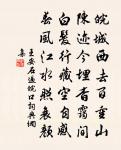 皖城西去百重山
陳迹今埋杳靄間
白髮行藏空自感
春風江水照衰顏
王安石過皖口詞典網
集